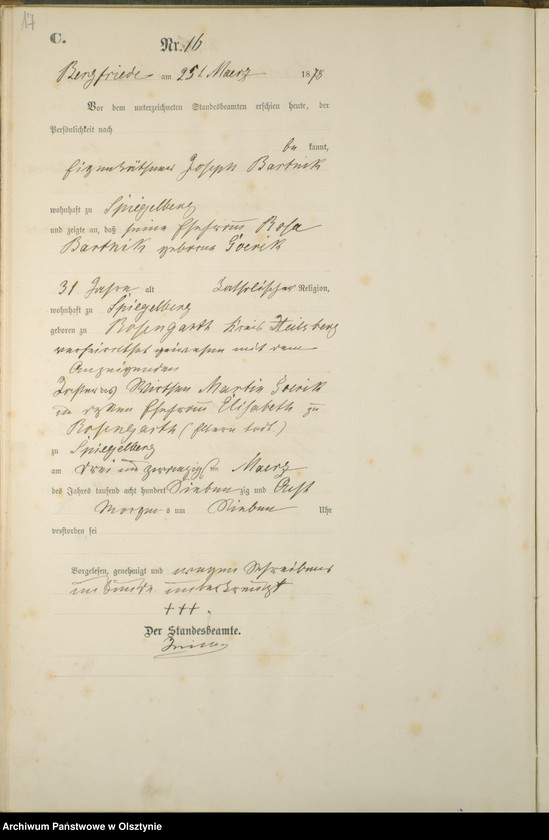 17
C.
Nr. 16
Bergfriede am 25t Maerz 1878
Vor dem unterzeichneten Standesbeamten erschien heute, der
Persönlichkeit nach
be kannt,
Eigenkäthner Joseph Bartnik
wohnhaft zu Spiegelberg
und zeigte an, daß seine Ehefrau Rosa
Bartnik geborne Goerik
31 Jahre alt Katholischer Religion,
wohnhaft zu Spiegelberg
geboren zu Rosengarth Kreis Heilsberg
verheirathet gewesen mit dem
Anzeigenden
Tochter des Wirthen Martin Goerik
Ehefrau Elisabeth zu
Rosengarth (Eltern todt.)
zu Spiegelberg
am drei und zwanzigsten Maerz
des Jahrs tausend acht hundert Sieben zig und Acht
Morgens um Sieben Uhr
verstorben sei
Vorgelesen, genehmigt und wegen Schreibens
unterkreuzt
+++
Der Standesbeamte.
Archiwum Państwowe w Olsztynie